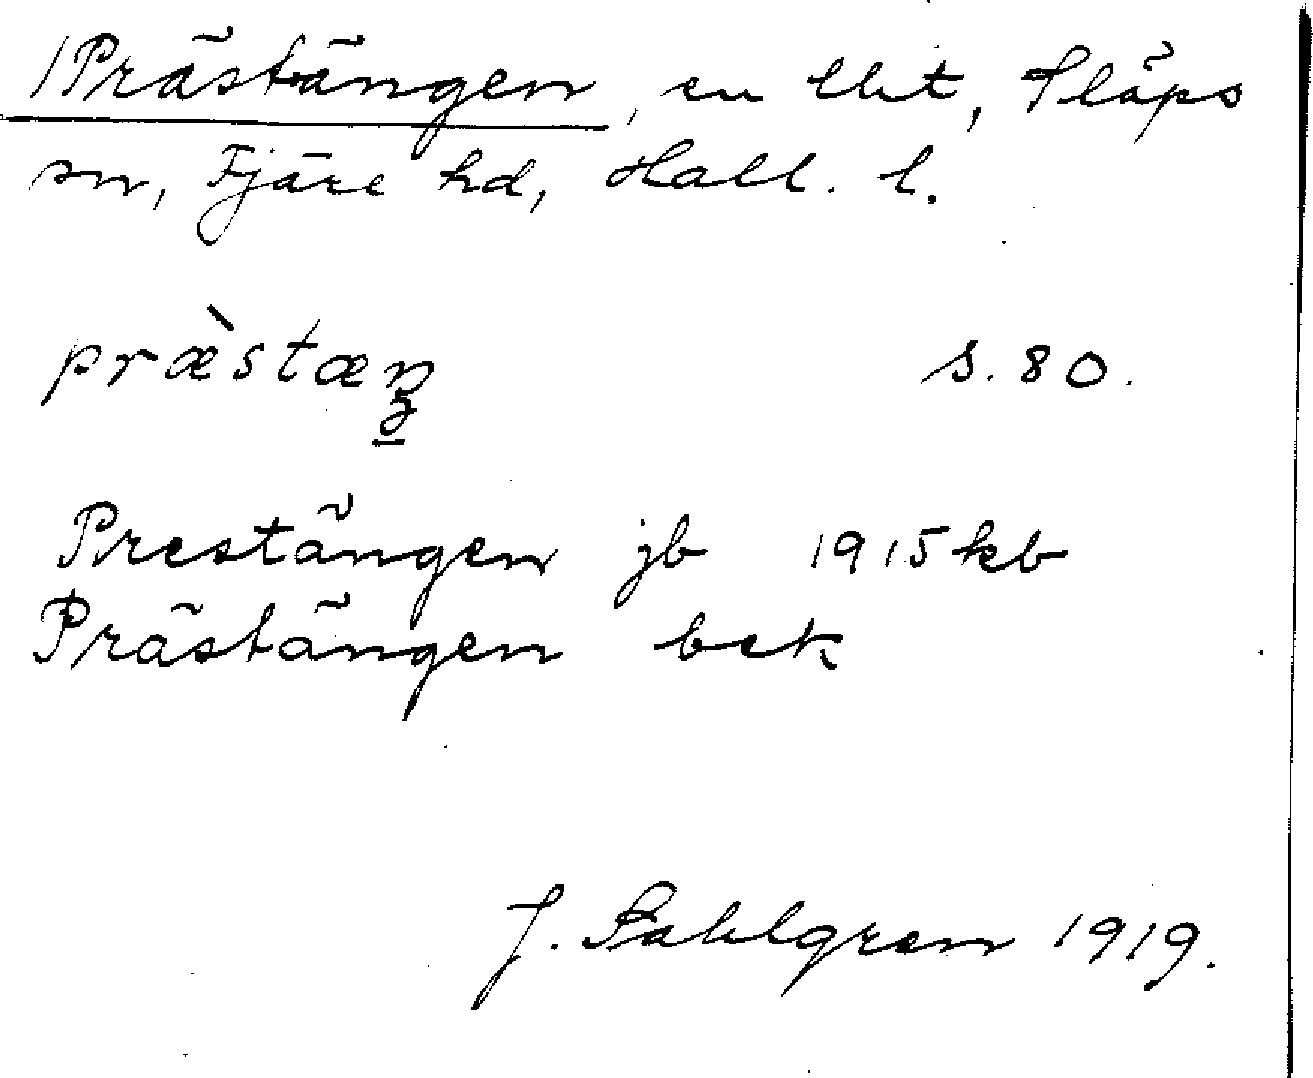 Prästängen, en lht, Släps
sn, Fjäre hd, Hall. l.
præ̀stæŋ s. 80.
Prestängen jb 1915 kb
Prästängen bek
J. Sahlgren 1919.